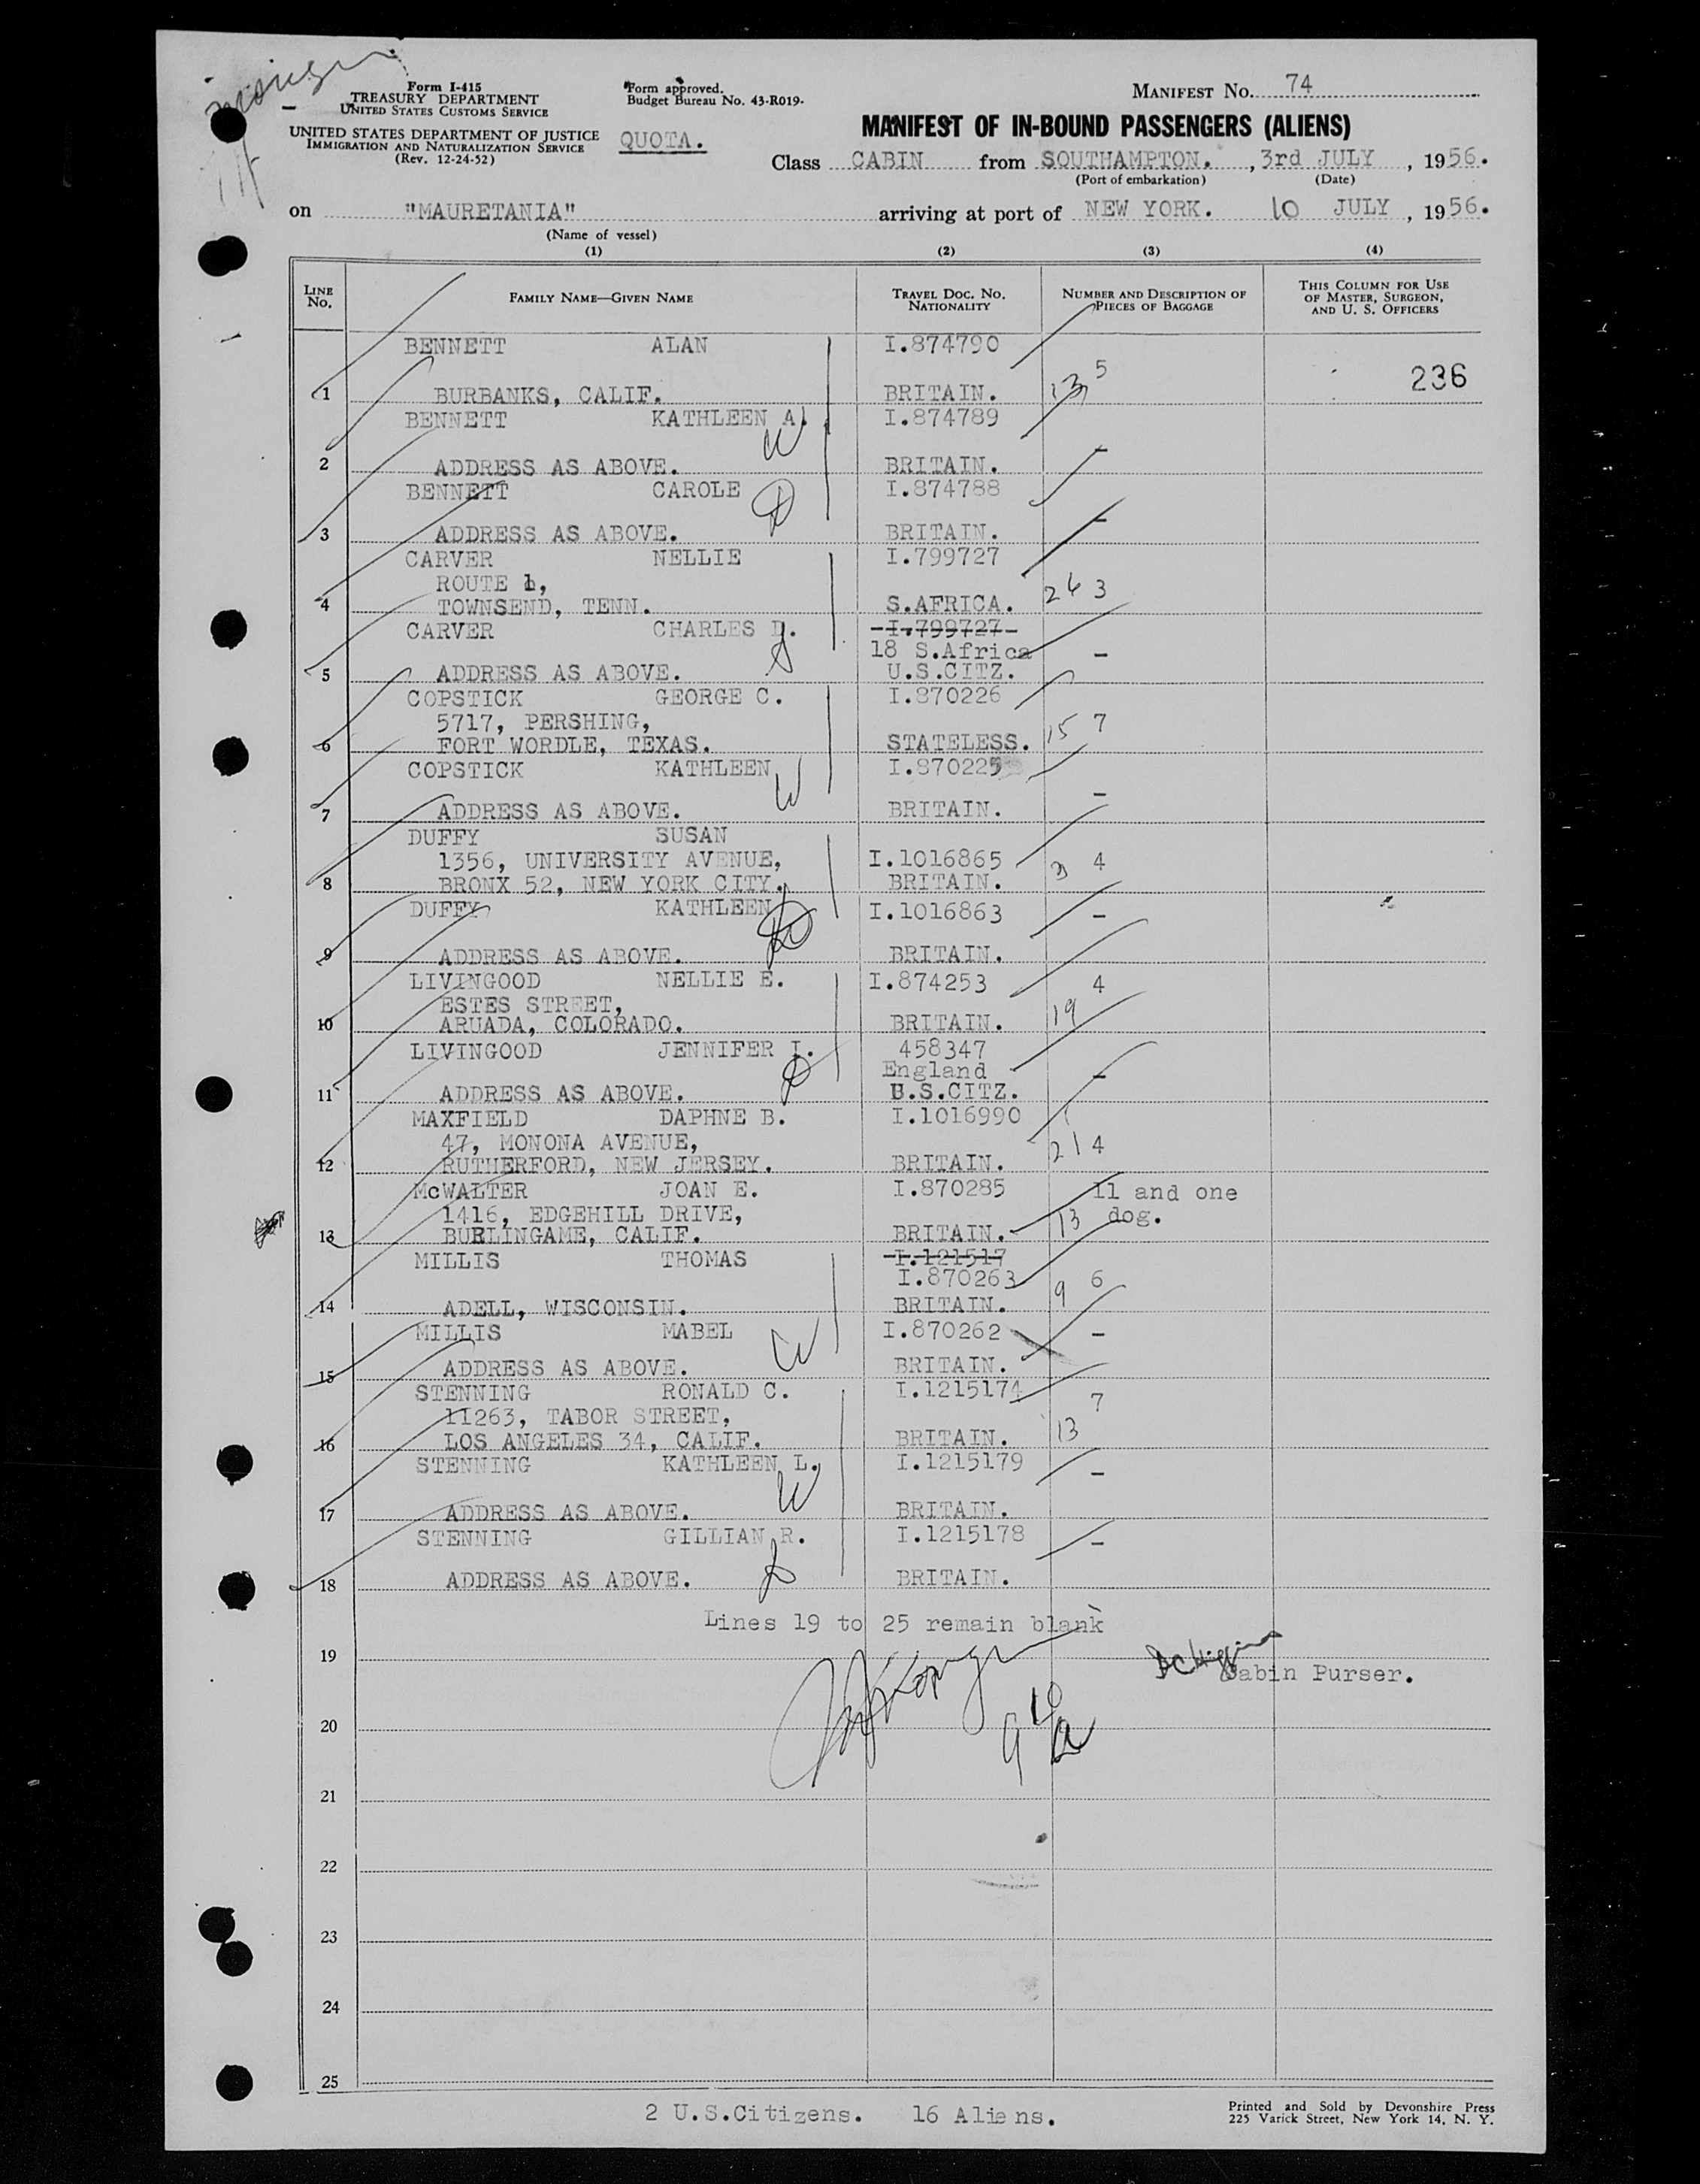 Form I-415
TREASURY DEPARTMENT
UNITED STATES CUSTOMS SERVICE
UNITED STATES DEPARTMENT OF JUSTICE
IMMIGRATION AND NATURALIZATION SERVICE
(Rev. 12-24-52)
Form approved.
Budget Bureau No. 43-R019.
QUOTA.
MANIFEST NO. 74
MANIFEST OF IN-BOUND PASSENGERS (ALIENS)
Class CABIN from SOUTHAMPTON. , 3rd JULY , 1956.
(Port of embarkation) (Date)
on "MAURETANIA" arriving at port of NEW YORK. 10 JULY , 1956.
(Name of vessel)
(1) (2) (3) (4)
LINE NO. FAMILY NAME—GIVEN NAME TRAVEL DOC. NO. NATIONALITY NUMBER AND DESCRIPTION OF PIECES OF BAGGAGE THIS COLUMN FOR USE OF MASTER, SURGEON, AND U. S. OFFICERS
BENNETT ALAN I.874790
1 BURBANKS, CALIF. BRITAIN. 13 5 236
BENNETT KATHLEEN A. I.874789
W
2 ADDRESS AS ABOVE. BRITAIN. –
BENNETT CAROLE I.874788
D
3 ADDRESS AS ABOVE. BRITAIN. –
CARVER NELLIE I.799727
ROUTE 1,
4 TOWNSEND, TENN. S.AFRICA. 26 3
CARVER CHARLES D. I.799727
18 S.Africa –
5 ADDRESS AS ABOVE. U.S.CITZ.
COPSTICK GEORGE C. I.870226
5717, PERSHING, 15 7
6 FORT WORDLE, TEXAS. STATELESS.
COPSTICK KATHLEEN I.870225
W
7 ADDRESS AS ABOVE. BRITAIN. –
DUFFY SUSAN
1356, UNIVERSITY AVENUE, I.1016865 4
8 BRONX 52, NEW YORK CITY. BRITAIN.
DUFFY KATHLEEN I.1016863 –
9 ADDRESS AS ABOVE. BRITAIN.
LIVINGOOD NELLIE E. I.874253 4
ESTES STREET, 19
10 ARUADA, COLORADO. BRITAIN.
LIVINGOOD JENNIFER I. 458347
England –
11 ADDRESS AS ABOVE. U.S.CITZ.
MAXFIELD DAPHNE B. I.1016990
47, MONONA AVENUE, 21 4
12 RUTHERFORD, NEW JERSEY. BRITAIN.
McWALTER JOAN E. I.870285 11 and one
1416, EDGEHILL DRIVE, 13 dog.
13 BURLINGAME, CALIF. BRITAIN.
MILLIS THOMAS I.121517
I.870263 9 6
14 ADELL, WISCONSIN. BRITAIN.
MILLIS MABEL I.870262 –
W
15 ADDRESS AS ABOVE. BRITAIN.
STENNING RONALD C. I.1215174 7
11263, TABOR STREET,
16 LOS ANGELES 34, CALIF. BRITAIN. 13
STENNING KATHLEEN L. I.1215179 –
W
17 ADDRESS AS ABOVE. BRITAIN.
STENNING GILLIAN R. I.1215178 –
18 ADDRESS AS ABOVE. BRITAIN.
Lines 19 to 25 remain blank
19
Cabin Purser.
20
21
22
23
24
25
2 U.S.Citizens. 16 Aliens.
Printed and Sold by Devonshire Press
225 Varick Street, New York 14, N. Y.